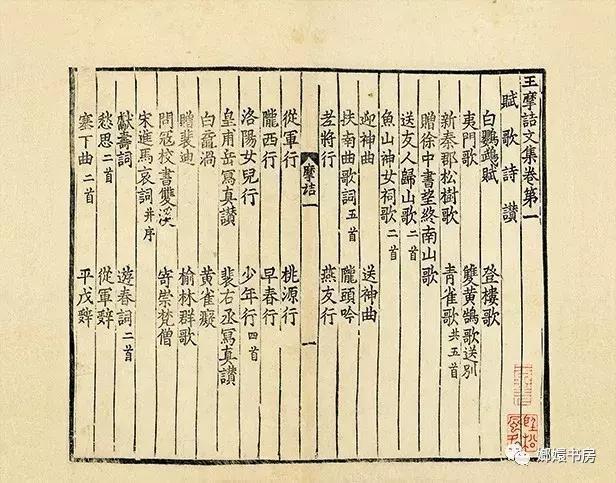 王摩詰文集卷第一
賦 歌 詩 讚
白鸚鵡賦 登樓歌
夷門歌 雙黃鵠歌送別
新秦郡松樹歌 青雀歌共五首
贈徐中書望終南山歌
送友人歸山歌二首
魚山神女祠歌二首
迎神曲 送神曲
扶南曲歌詞五首 隴頭吟
老將行 燕支行
摩詰一 一
從軍行 桃源行
隴西行 早春行
洛陽女兒行 少年行四首
皇甫岳寫真讚 裴右丞寫真讚
白黿渦 黃雀癡
贈裴迪 榆林郡歌
問寇校書雙溪 寄崇梵僧
宋進馬哀詞并序
獻壽詞 遊春詞二首
愁思二首 從軍辭
塞下曲二首 平戎辭
嫏嬛书房